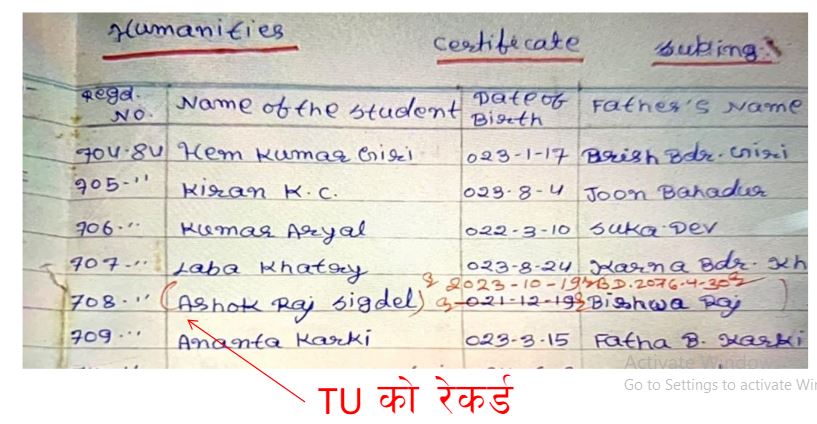 Humanities Certificate
Regd. No. Name of the student Date of Birth Father's Name
704-84 Hem Kumar Giri 023-1-17 Brish Bdr. Giri
705-" Kiran K.C. 023-8-4 Joon Bahadur
706-" Kumar Aryal 022-3-10 Suka Dev
707-" Laba Khatry 023-8-24 Karna Bdr. Kh
2023-10-19 B.D. 2076-4-30
708-" (Ashok Raj Sigdel) 021-12-19 Bishwa Raj
709-" Ananta Karki 023-3-15 Fatha B. Karki
Activate Windows
Go to Settings to activate Wi
TU को रेकर्ड